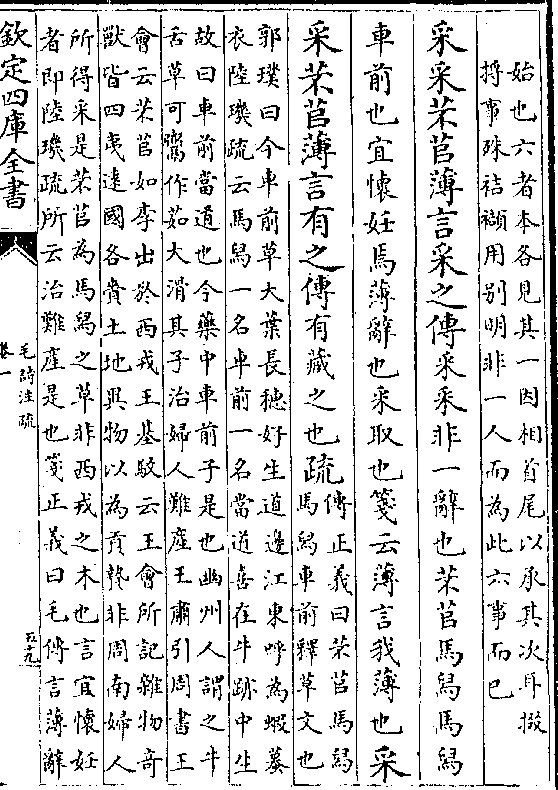 始也六者本各見其一因相首尾以承其次耳掇
捋事殊袺襭用别明非一人而為此六事而已
采采芣苢薄言采之傳采采非一辭也芣苢馬舄馬舄
車前也宜懷妊焉薄辭也采取也箋云薄言我薄也采
采芣苢薄言有之傳有藏之也疏
傳正義曰芣苢馬舄
馬舄車前釋草文也
郭璞曰今車前草大葉長穗好生道邊江東呼為蝦蟇
衣陸璣疏云馬舄一名車前一名當道喜在牛跡中生
故曰車前當道也今藥中車前子是也幽州人謂之牛
舌草可鬻作茹大滑其子治婦人難產王肅引周書王
會云芣苢如李出於西戎王基駮云王會所記雜物奇
獸皆四夷遠國各賫土地異物以為貢贄非周南婦人
所得采是芣苢為馬舄之草非西戎之木也言宜懷妊
者即陸璣疏所云治難產是也箋正義曰毛傳言薄辭
欽定四庫全書
毛詩注疏
卷一
五十九